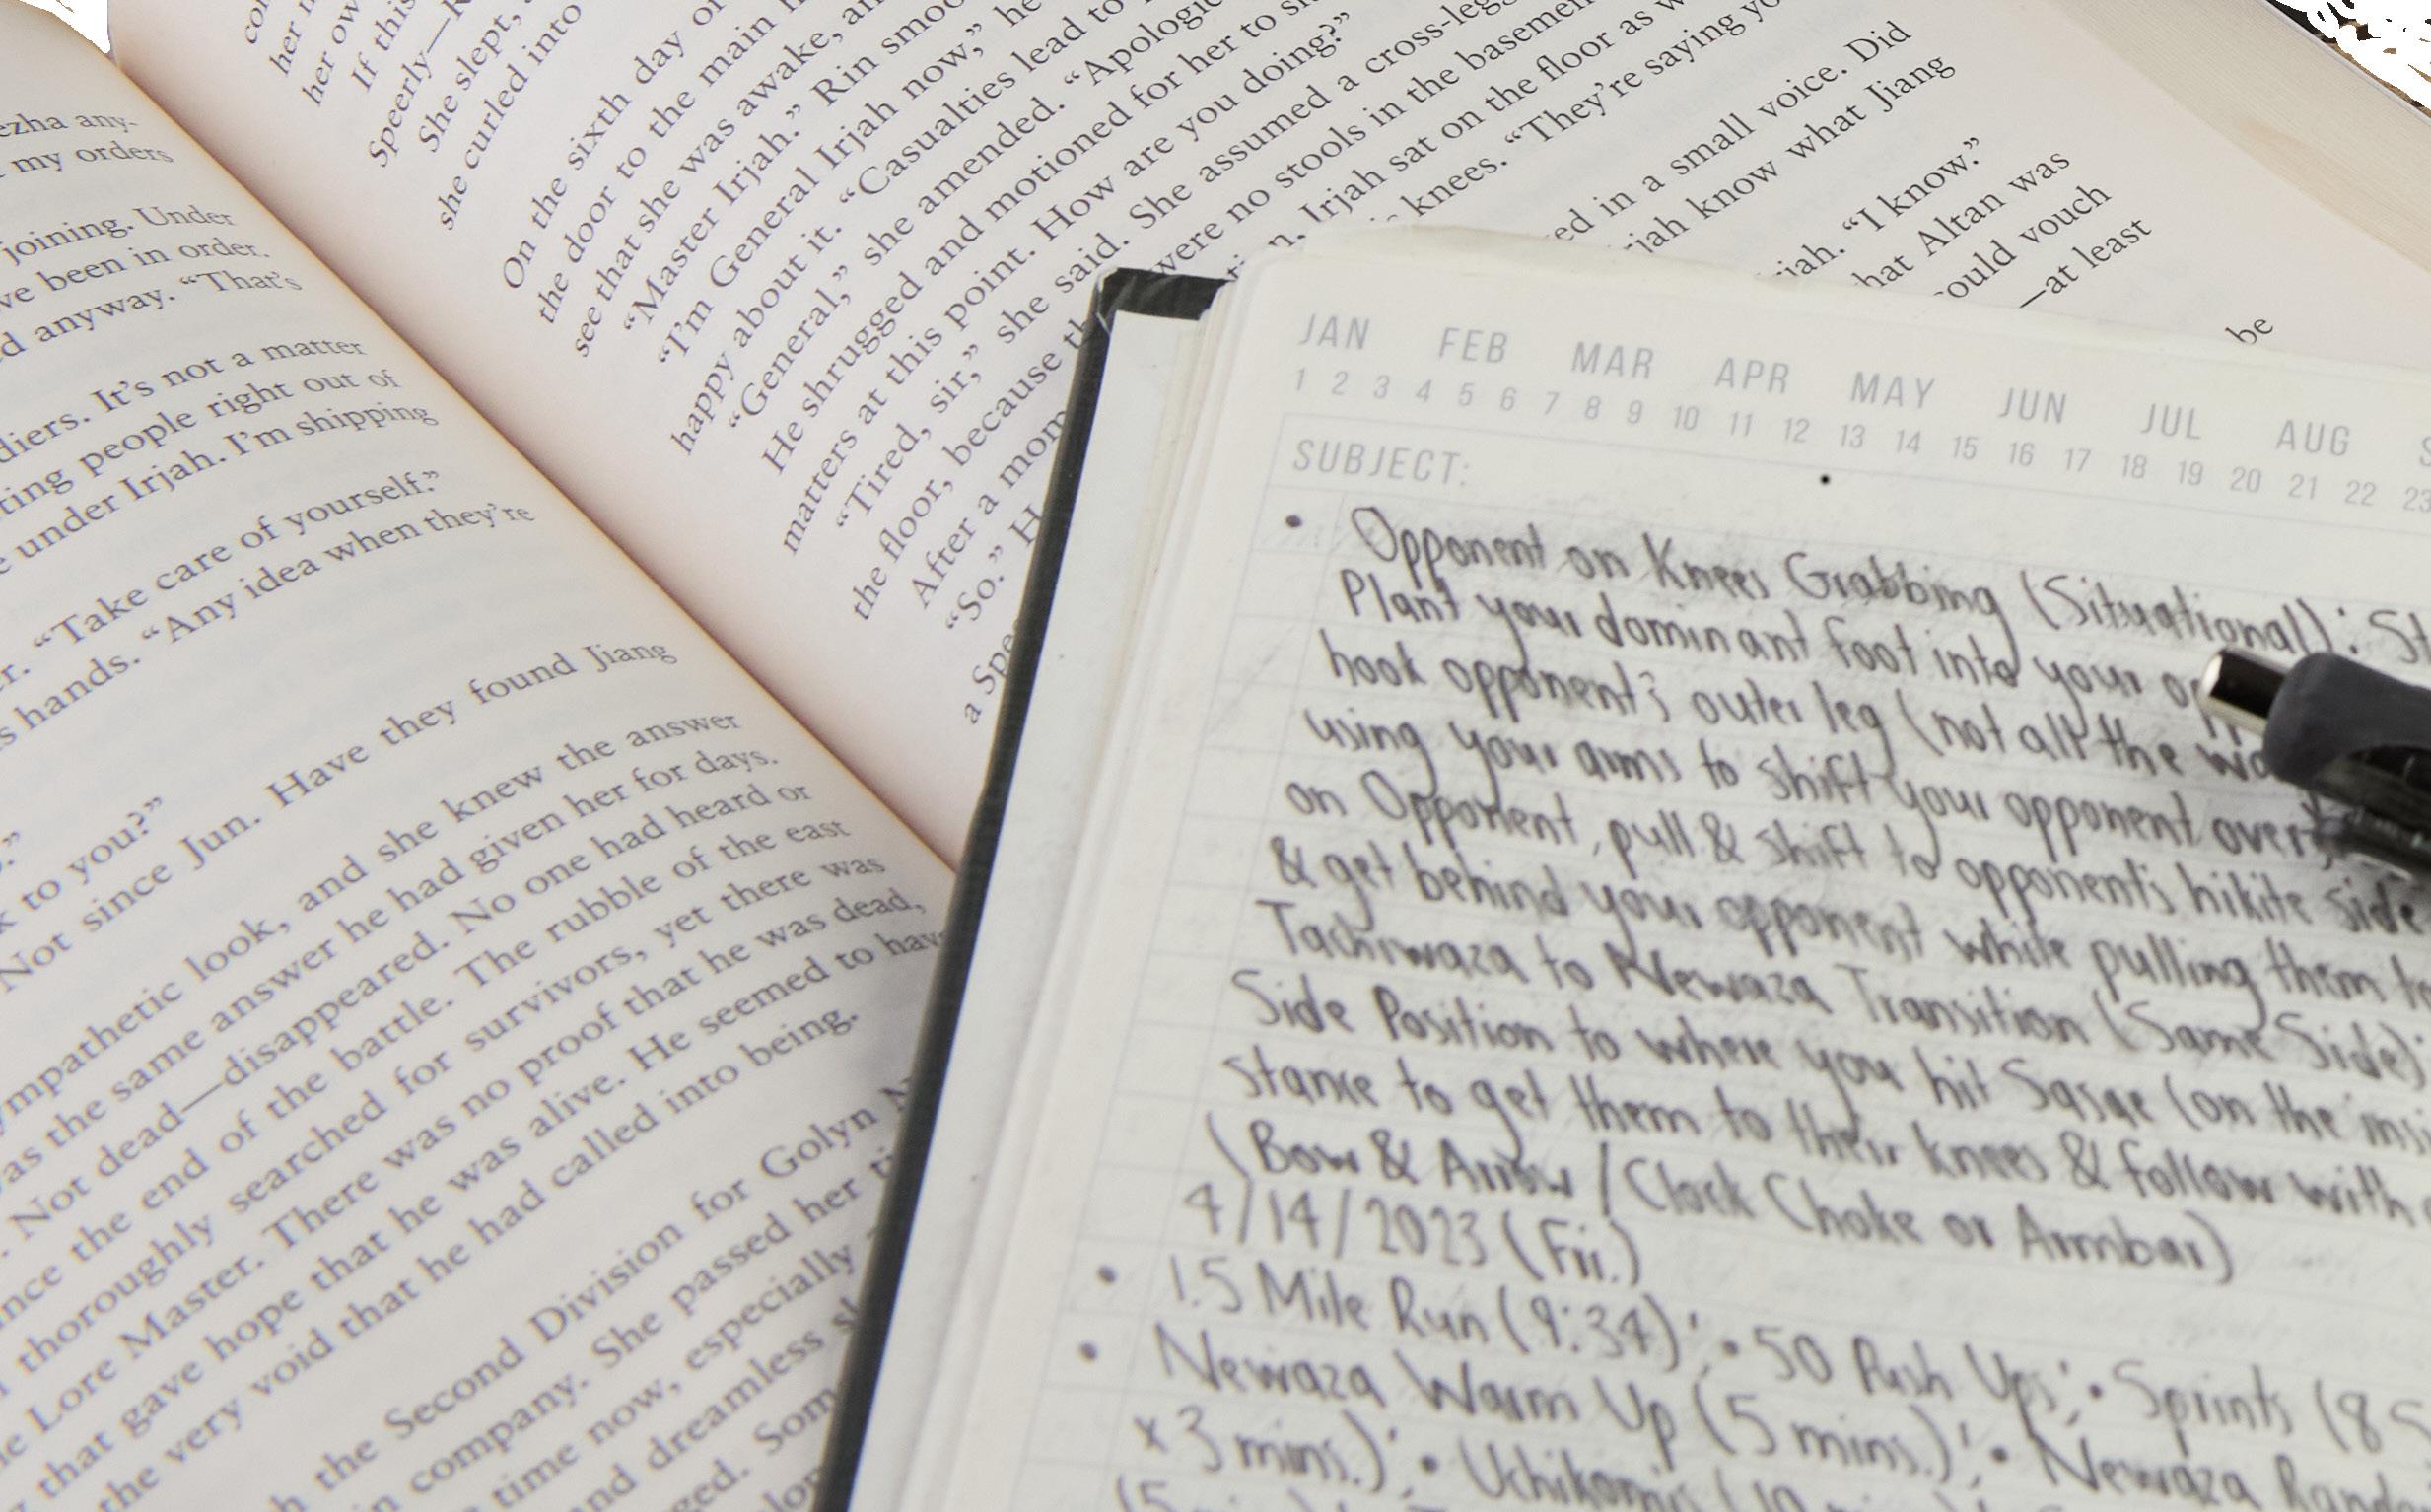 ezha any-
my orders
joining. Under
ve been in order.
d anyway. “That’s
diers. It’s not a matter
ting people right out of
under Irjah. I’m shipping
“Take care of yourself.”
s hands. “Any idea when they’re
k to you?”
Not since Jun. Have they found Jiang
ympathetic look, and she knew the answer
was the same answer he had given her for days.
. Not dead—disappeared. No one had heard or
nce the end of the battle. The rubble of the east
thoroughly searched for survivors, yet there was
e Lore Master. There was no proof that he was dead,
that gave hope that he was alive. He seemed to have
the very void that he had called into being.
the Second Division for Golyn N
n company. She passed her ti
time now, especially
and dreamless sl
ged. Som
her ow
If this
Speerly—R
She slept,
she curled into
On the sixth day o
the door to the main
see that she was awake, an
“Master Irjah.” Rin smoo
“I’m General Irjah now,” he
happy about it. “Casualties lead to
“General,” she amended. “Apologi
He shrugged and motioned for her to si
matters at this point. How are you doing?”
“Tired, sir,” she said. She assumed a cross-leg
the floor, because th were no stools in the basemen
After a mom n. Irjah sat on the floor as w
“So.” H knees. “They’re saying yo
a Spee
ed in a small voice. Did
jah know what Jiang
jah. “I know.”
hat Altan was
ould vouch
—at least
be
JAN FEB MAR APR MAY JUN JUL AUG S
1 2 3 4 5 6 7 8 9 10 11 12 13 14 15 16 17 18 19 20 21 22 23
SUBJECT:
• Opponent on Knees Grabbing (Situational): St
Plant your dominant foot into your opp
hook opponent's outer leg (not all the wa
using your arms to shift your opponent over
on Opponent, pull & shift to opponent's hikite side
& get behind your opponent while pulling them
Tachiwaza to Newaza Transition (Same Side);
Side Position to where you hit Sasae (on the insi
stance to get them to their knees & follow with
(Bow & Arrow / Clock Choke or Armbar)
4/14/2023 (Fri.)
• 1.5 Mile Run (9:34); • 50 Push Ups; • Sprints (8 S
• Newaza Warm Up (5 mins.); • Newaza Rand
x 3 mins.); • Uchikomis (10
(5